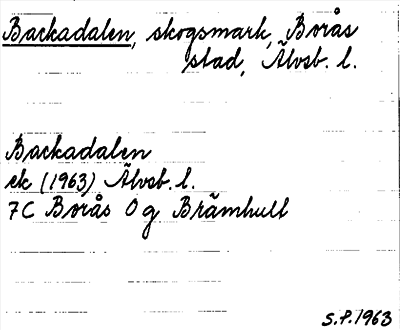 Backadalen, skogsmark, Borås
stad, Älvsb. l.
Backadalen
ek (1963) Älvsb. l.
7C Borås 0 g Brämhult
S.P. 1963